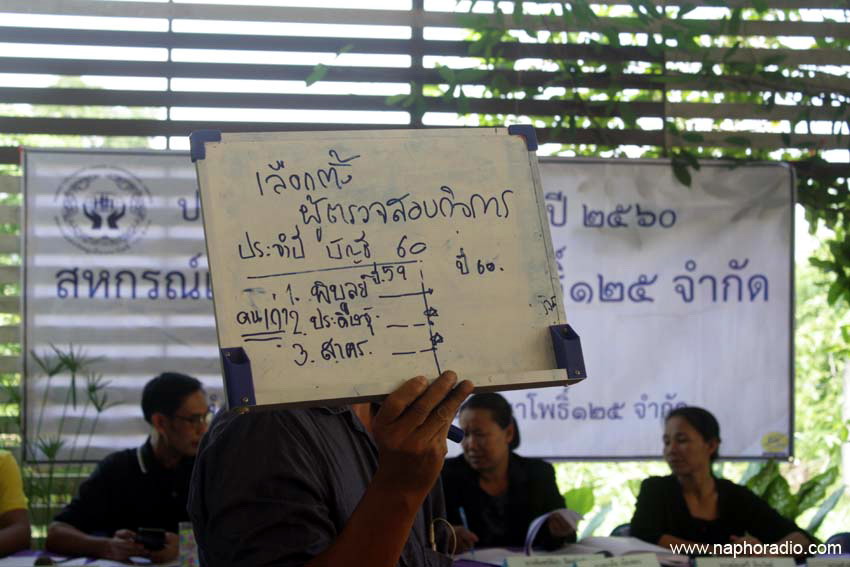 เลือกตั้ง
ผู้ตรวจสอบกิจการ
ประจำปี บัญชี 60
ปี 59
ปี 60.
1. พิบูลย์
คนเก่า 2. ประดิษฐ์
3. สาคร.
ปี ๒๕๖๐
สหกรณ์
๑๒๕ จำกัด
นาโพธิ์๑๒๕ จำกัด
www.naphoradio.com